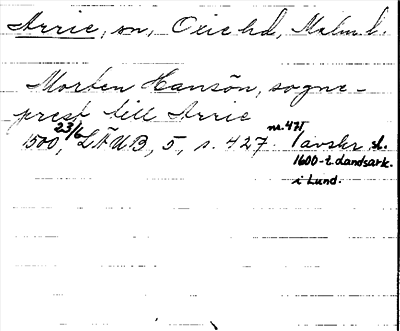 Arrie, sn, Oxie hd, Malm. l.
Morten Hansön, sogne-
prest till Arrie
1500, 23/6, LÄUB, 5, s. 427. nr. 471 / avskr. sl.
1600-t. Landsark.
i Lund.